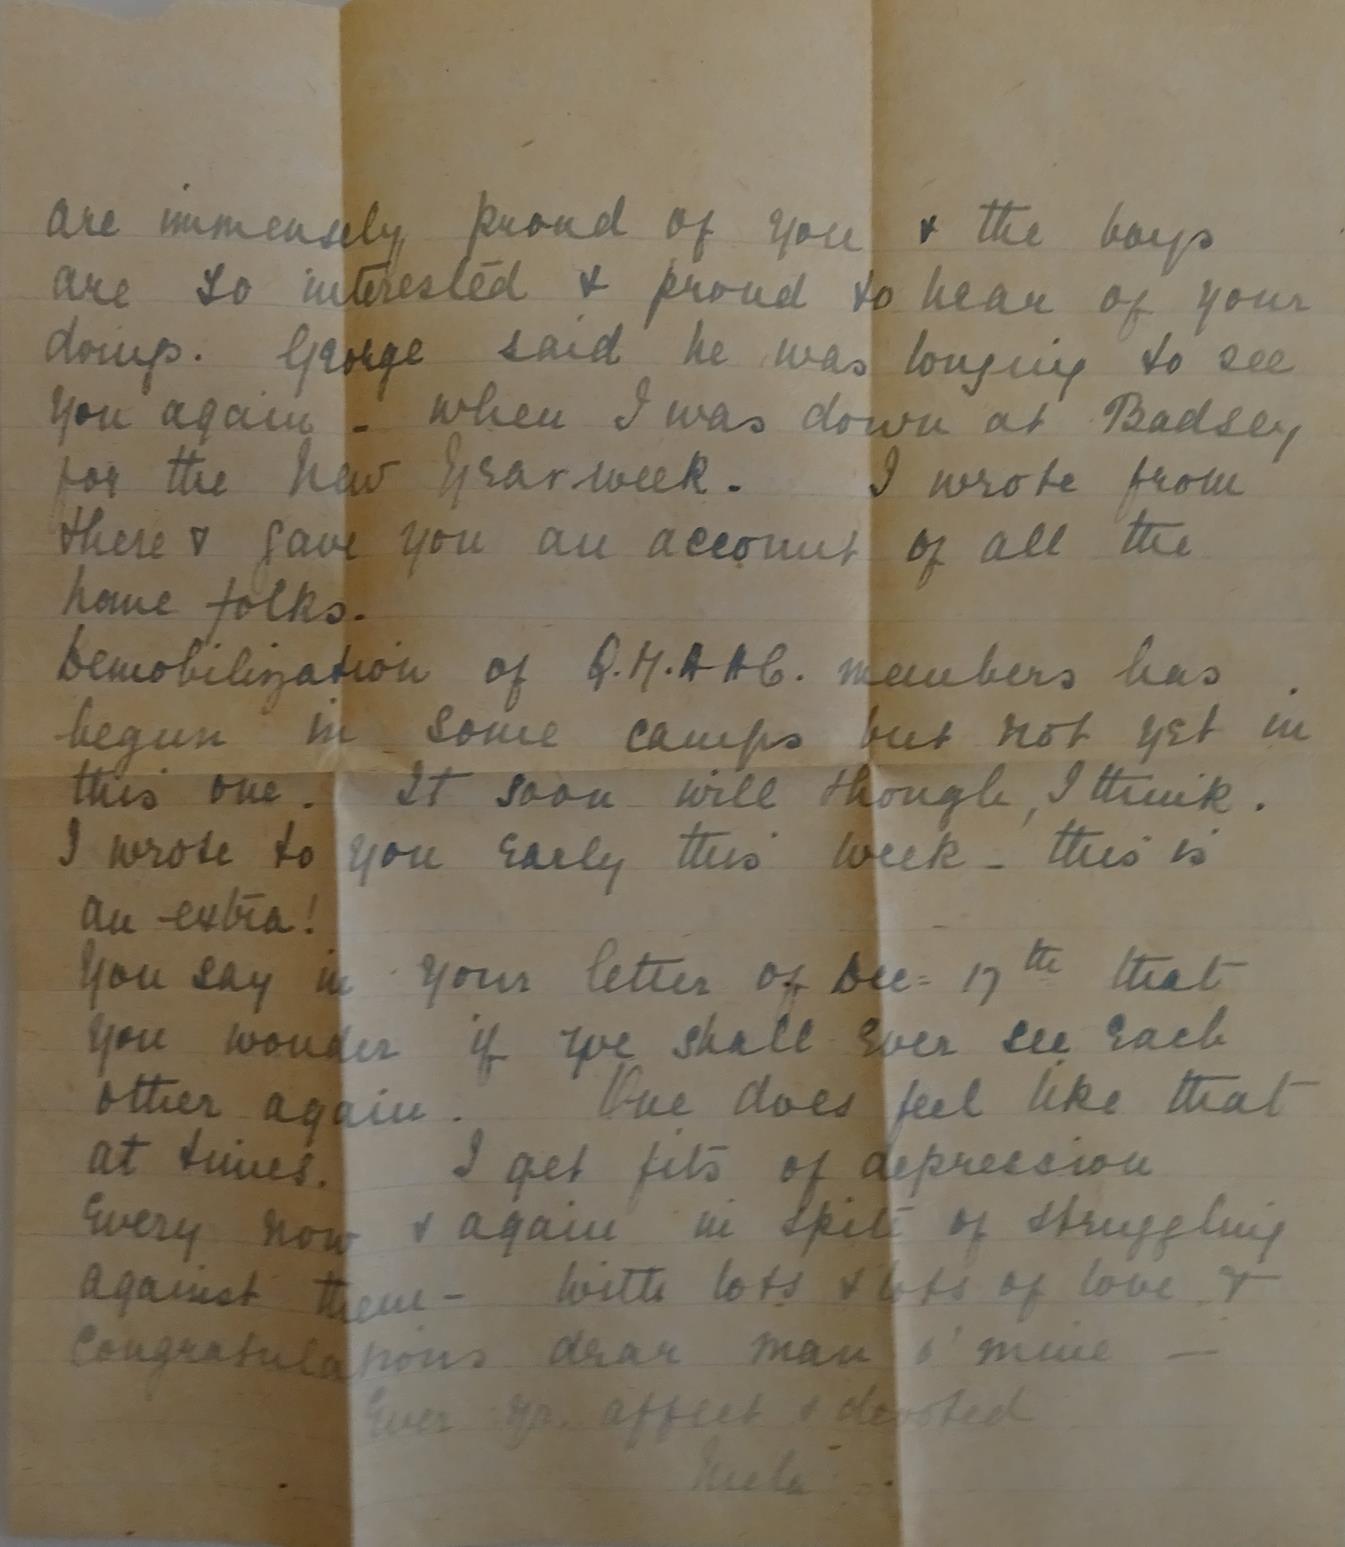 are immensely proud of you & the boys
are so interested & proud to hear of your
doings. George said he was longing to see
you again - when I was down at Badsey
for the New Year week. I wrote from
there & gave you an account of all the
home folks.
Demobilization of Q.M.A.A.C. members has
begun in some camps but not yet in
this one. It soon will though, I think.
I wrote to you early this week - this is
an extra!
You say in your letter of Dec= 17th that
you wonder if we shall ever see each
other again. One does feel like that
at times. I get fits of depression
every now & again in spite of struggling
against them - with lots & lots of love &
Congratulations dear man o' mine —
Ever yr. affect & devoted